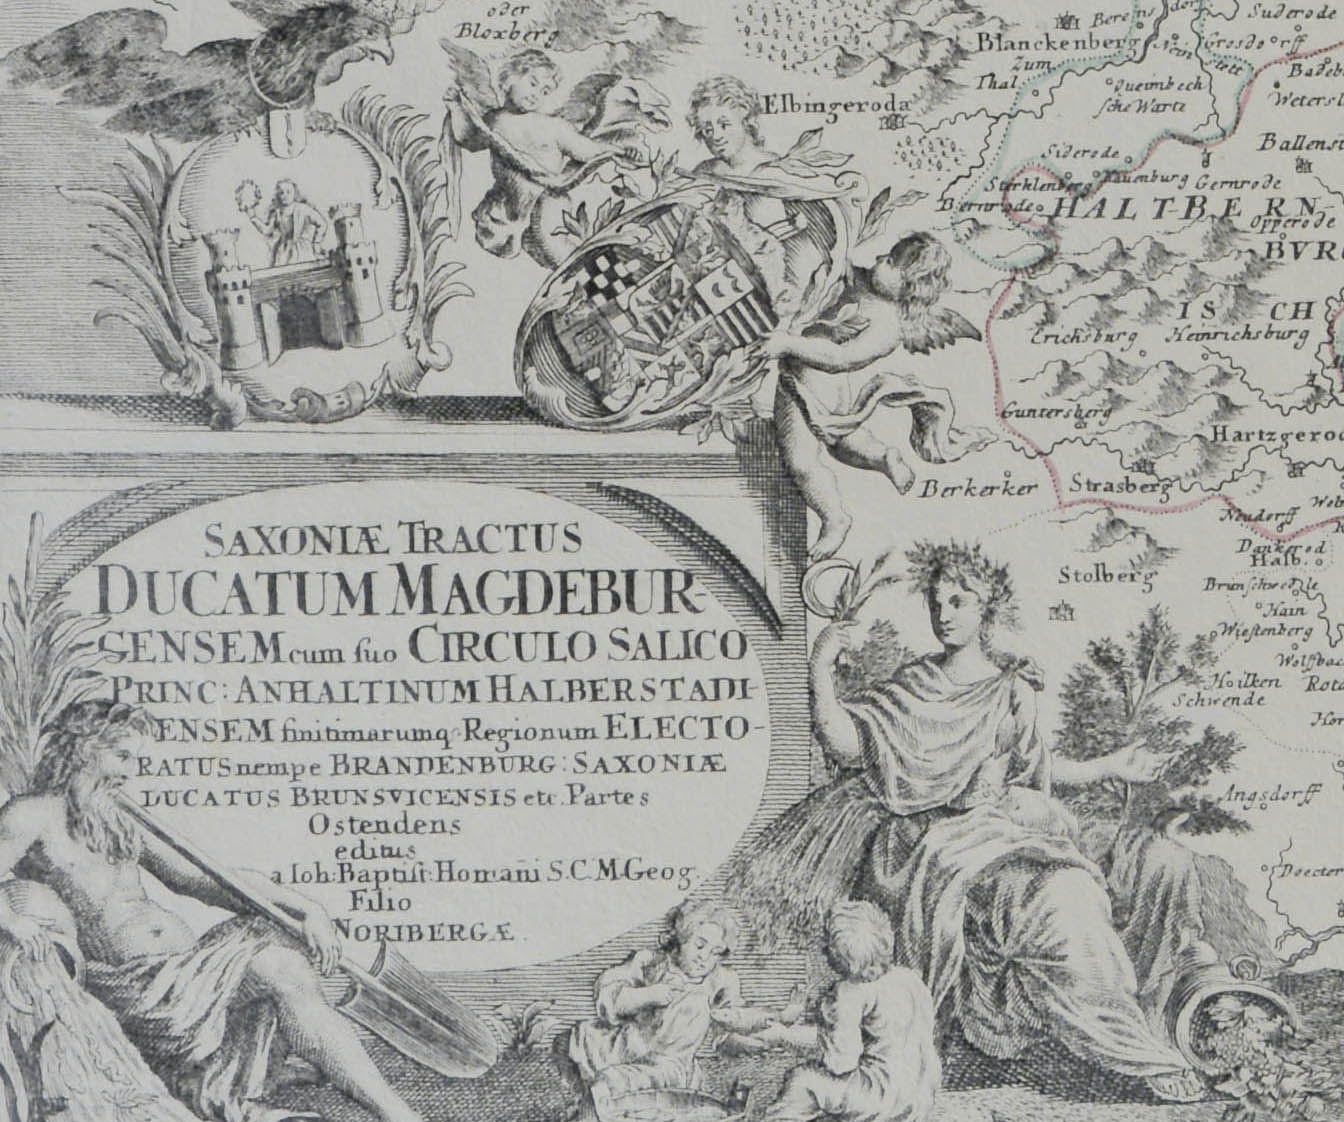 oder
Bloxberg
Elbingeroda
Blanckenberg
zum
Thal
Queimbech
sche Wartz
Suderode
Grosdorff
Ballenst
Siderode
Sterklenberg
Lauenburg
Gernrode
Bernrode
HALT-BERN-
Opperode
BVR
ISCH
Erichsburg
Heinrichsburg
Guntersberg
Hartzgerod
Berkerker
Strasberg
Neudorff
Dankerod
Halb.
Stolberg
Brunschwedle
Hain
Wiestenberg
Hoilken
Schwende
Angsdorff
SAXONIÆ TRACTUS
DUCATUM MAGDEBUR-
GENSEM cum suo CIRCULO SALICO
PRINC: ANHALTINUM HALBERSTADI-
ENSEM finitimarumq Regionum ELECTO-
RATUS nempe BRANDENBURG: SAXONIÆ
DUCATUS BRUNSVICENSIS etc. Partes
Ostendens
editus
a Ioh: Baptist: Homañi S.C.M. Geog.
Filio
NORIBERGÆ.